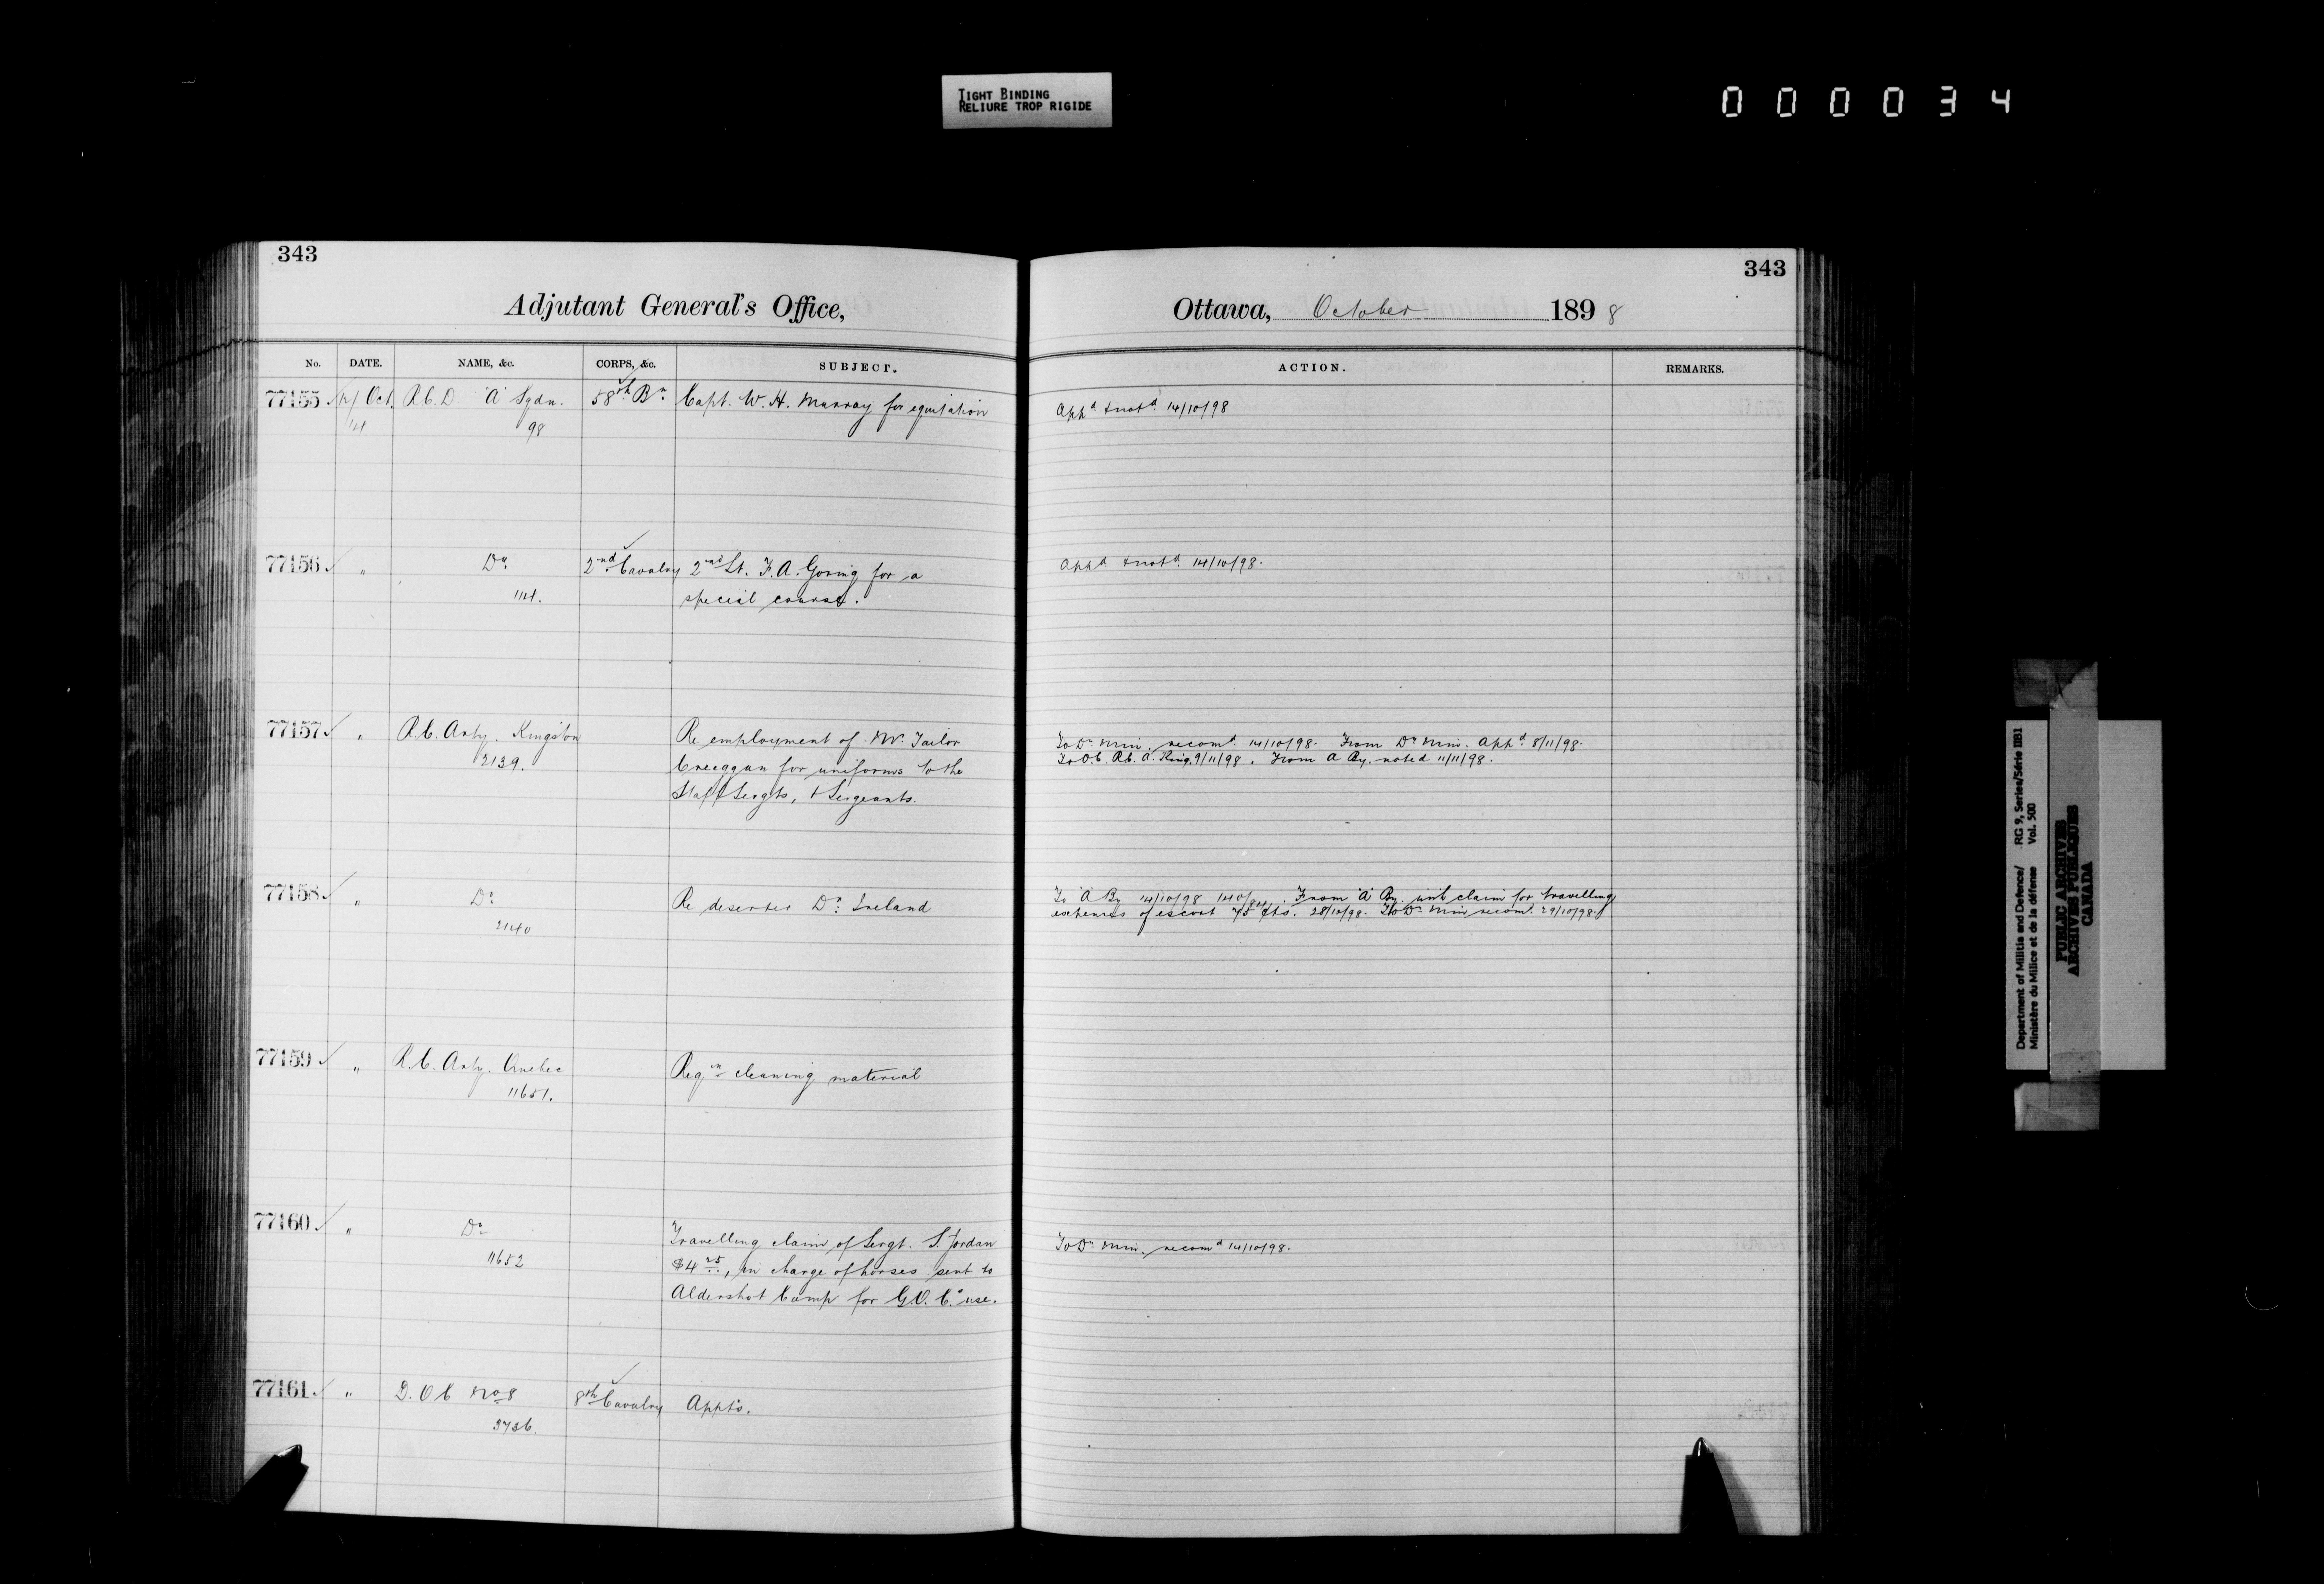 TIGHT BINDING
RELIURE TROP RIGIDE
000034
343
Adjutant General's Office,
No. DATE. NAME, &c. CORPS, &c. SUBJECT.
77155 Oct. R.C.D "A" Sqdn. 58th Bn. Capt. W. H. Murray for equitation
14 98
77156 " Do. 2nd Cavalry 2nd Lt. F. A. Goring for a
1141. special course.
77157 " R.C. Arty. Kingston Re employment of Mr. Tailor
2139. Creeggan for uniforms to the
Staff Sergts, + Sergeants.
77158 " Do. Re deserter Dr. Ireland
2140
77159 " R.C. Arty. Quebec Reqn cleaning material
11651.
77160 " Do. Travelling claim of Sergt. S. Jordan
11652 $4 25, in charge of horses sent to
Aldershot Camp for G.O.C.s use.
77161 " D.O.C No 8 8th Cavalry Appts.
3736.
343
Ottawa, October 1898
ACTION. REMARKS.
Appd & notd. 14/10/98
Appd & notd. 14/10/98.
To Dy. Min. recomd. 14/10/98. From Dy. Min. Appd. 8/11/98.
To O.C. R.C.A. King. 9/11/98. From A By. noted 11/11/98.
To "A" By 14/10/98 From "A" By. with claim for travelling
expenses of escort 75 cts. 28/10/98. To Dy. Min recomd. 29/10/98.
To Dy. Min. recomd 14/10/98.
Department of Militia and Defence/ RG 9, Series/Série IIB1
Ministère du Milice et de la défense Vol. 500
PUBLIC ARCHIVES
ARCHIVES PUBLIQUES
CANADA